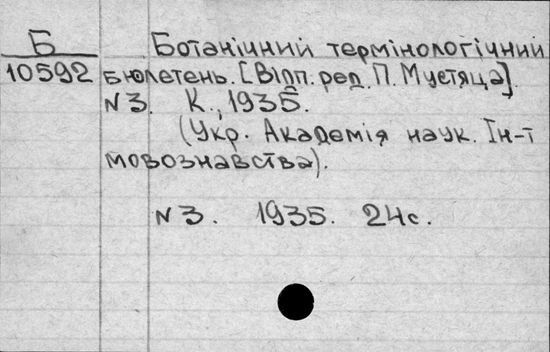 Б
10592
Ботанічний термінологічний
бюлетень. [Відп. ред. П. Мустяца].
N 3. К., 1935.
(Укр. Академія наук. Ін-т
мовознавства).
N 3. 1935. 24 с.